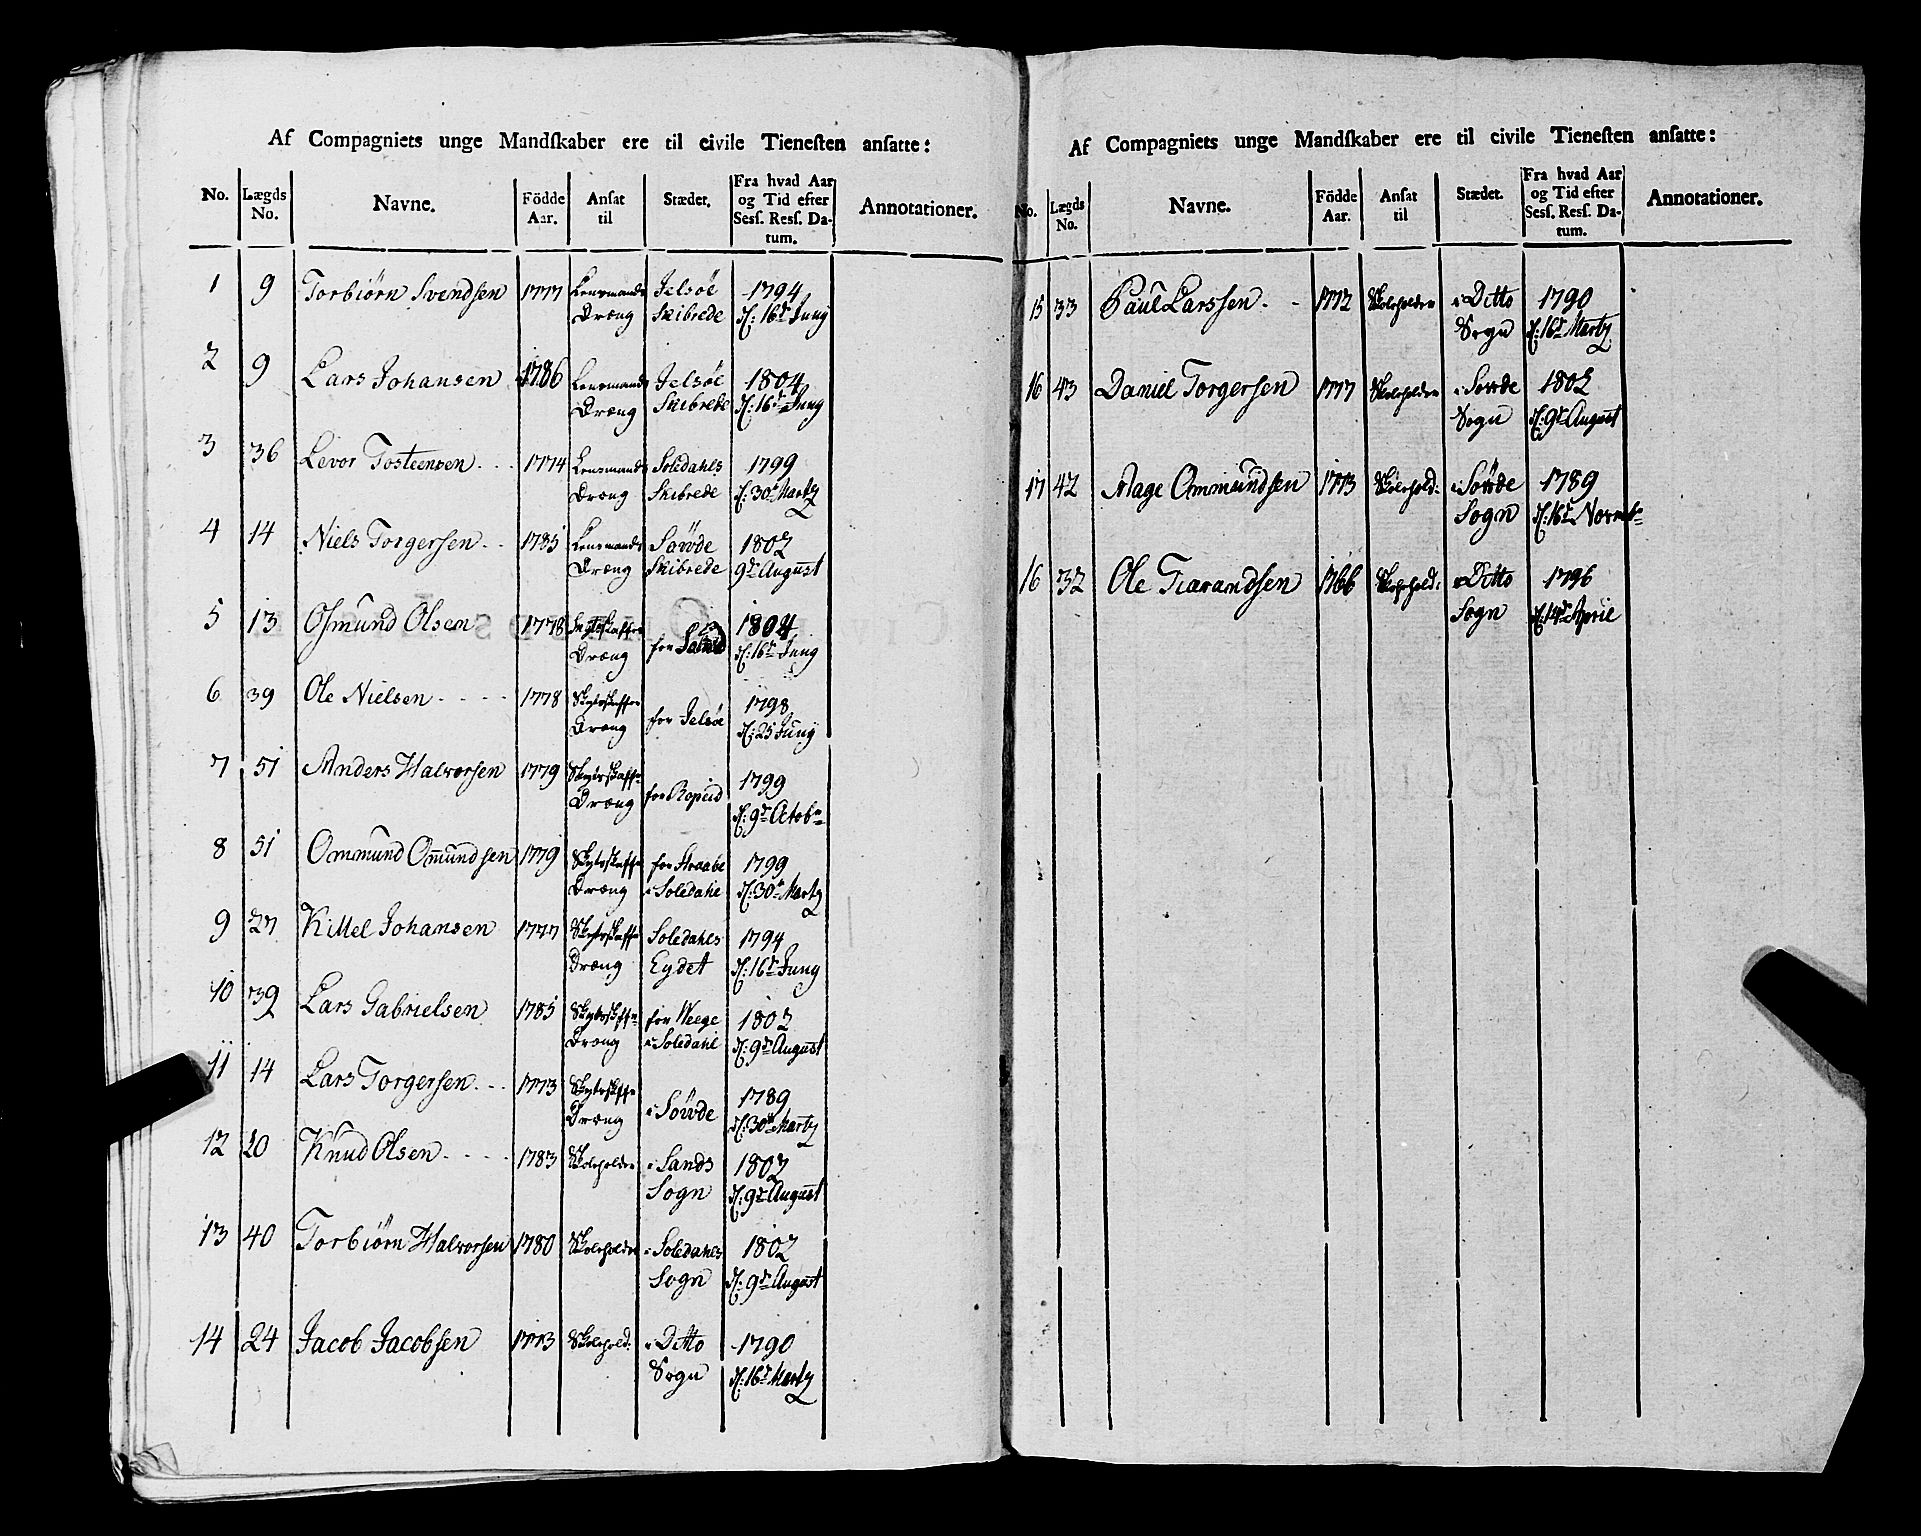 Af Compagniets unge Mandſkaber ere til civile Tieneſten anſatte:
No. | Lægds No. | Navne. | Födde Aar. | Anſat til | Stædet. | Fra hvad Aar og Tid efter Seſſ. Reſſ. Datum. | Annotationer.
1 | 9 | Torbiörn Svendsen | 1777 | Lensmands Dræng | Jelsöe Skibrede | 1794 d: 16de Junÿ
2 | 9 | Lars Johansen | 1786 | Lensmands Dræng | Jelsöe Skibrede | 1804 d: 16de Junÿ
3 | 36 | Levor Tosteensen | 1774 | Lensmands Dræng | Soledahls Skibrede | 1799 d: 30te Marty
4 | 14 | Niels Torgersen | 1785 | Lensmands Dræng | Sövde Skibrede | 1802 9de August
5 | 13 | Osmund Olsen | 1778 | Skydsskaffer Dræng | for | 1804 d: 16de Junÿ
6 | 39 | Ole Nielsen | 1778 | Skydsskaffer Dræng | for Jelsöe | 1798 d: 25 Junÿ
7 | 51 | Anders Halvorsen | 1779 | Skydsskaffe Dræng | for Ropeid | 1799 d: 9de Octobr
8 | 51 | Ommund Omundsen | 1779 | Skydsskaffe Dræng | for Straabe i Soledahl | 1799 d: 30te Marty
9 | 27 | Kittel Johansen | 1777 | Skydsskaffe Dræng | Soledahls Eydet | 1794 d: 16de Junÿ
10 | 39 | Lars Gabrielsen | 1785 | Skydsskaffe Dræng | for Weege i Soledahl | 1802 d: 9de August
11 | 14 | Lars Torgersen | 1773 | Skydsskaffe Dræng | i Sövde | 1789 d: 30te Marty
12 | 20 | Knud Olsen | 1783 | Skoleholder | i Sands Sogn | 1802 d: 9de August
13 | 40 | Torbiörn Halvorsen | 1780 | Skoleholder | i Soledahls Sogn | 1802 d: 9de August
14 | 24 | Jacob Jacobsen | 1773 | Skolehold: | i Ditto Sogn | 1790 d: 16de Marty
Af Compagniets unge Mandſkaber ere til civile Tieneſten anſatte:
No. | Lægds No. | Navne. | Födde Aar. | Anſat til | Stædet. | Fra hvad Aar og Tid efter Seſſ. Reſſ. Datum. | Annotationer.
15 | 33 | Paul Larssen | 1772 | Skoleholder | i Ditto Sogn | 1790 d: 16de Marty
16 | 43 | Daniel Torgersen | 1777 | Skoleholder | i Sovde Sogn | 1802 d: 9de August
17 | 42 | Aage Ommundsen | 1773 | Skolehold: | i Sövde Sogn | 1789 d: 16de Novemb
16 | 32 | Ole Tiarandsen | 1766 | Skolehold: | i Ditto Sogn | 1796 d: 14de April